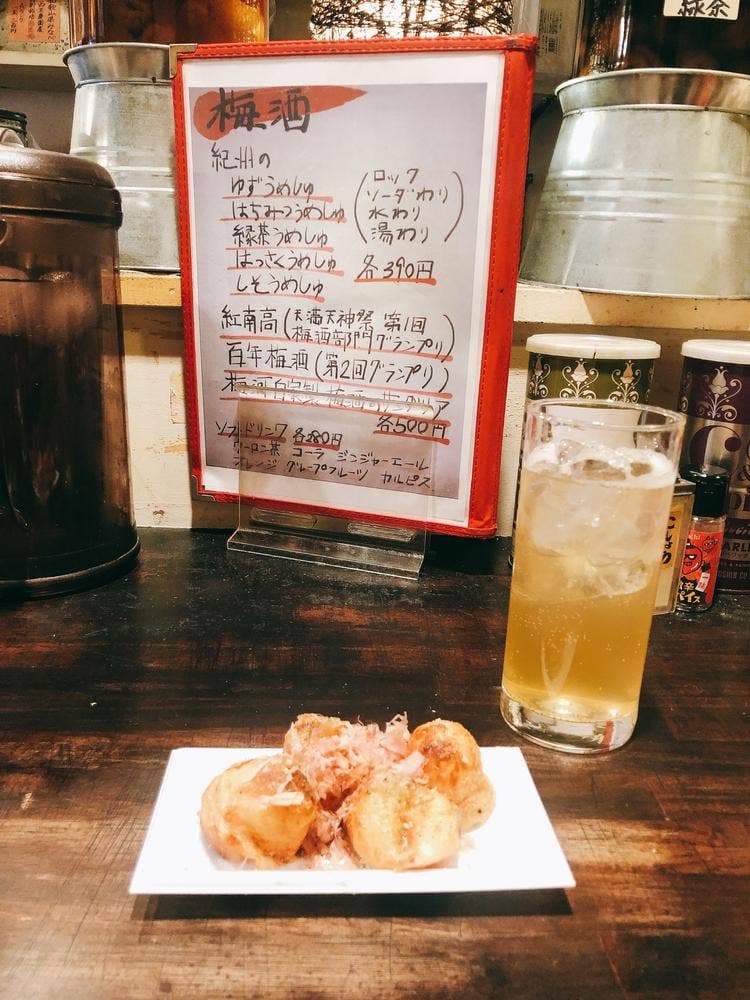 梅酒
紀州の
ゆずうめしゅ
はちみつうめしゅ
緑茶うめしゅ
はっさくうめしゅ
しそうめしゅ
(ロック
ソーダわり
水わり
湯わり)
各390円
紅南高(天満天神祭 第1回
梅酒部門グランプリ)
百年梅酒(第2回グランプリ)
自家製梅酒のサングリア
各500円
ソフトドリンク 各280円
ウーロン茶 コーラ ジンジャーエール
オレンジ グレープフルーツ カルピス
緑茶